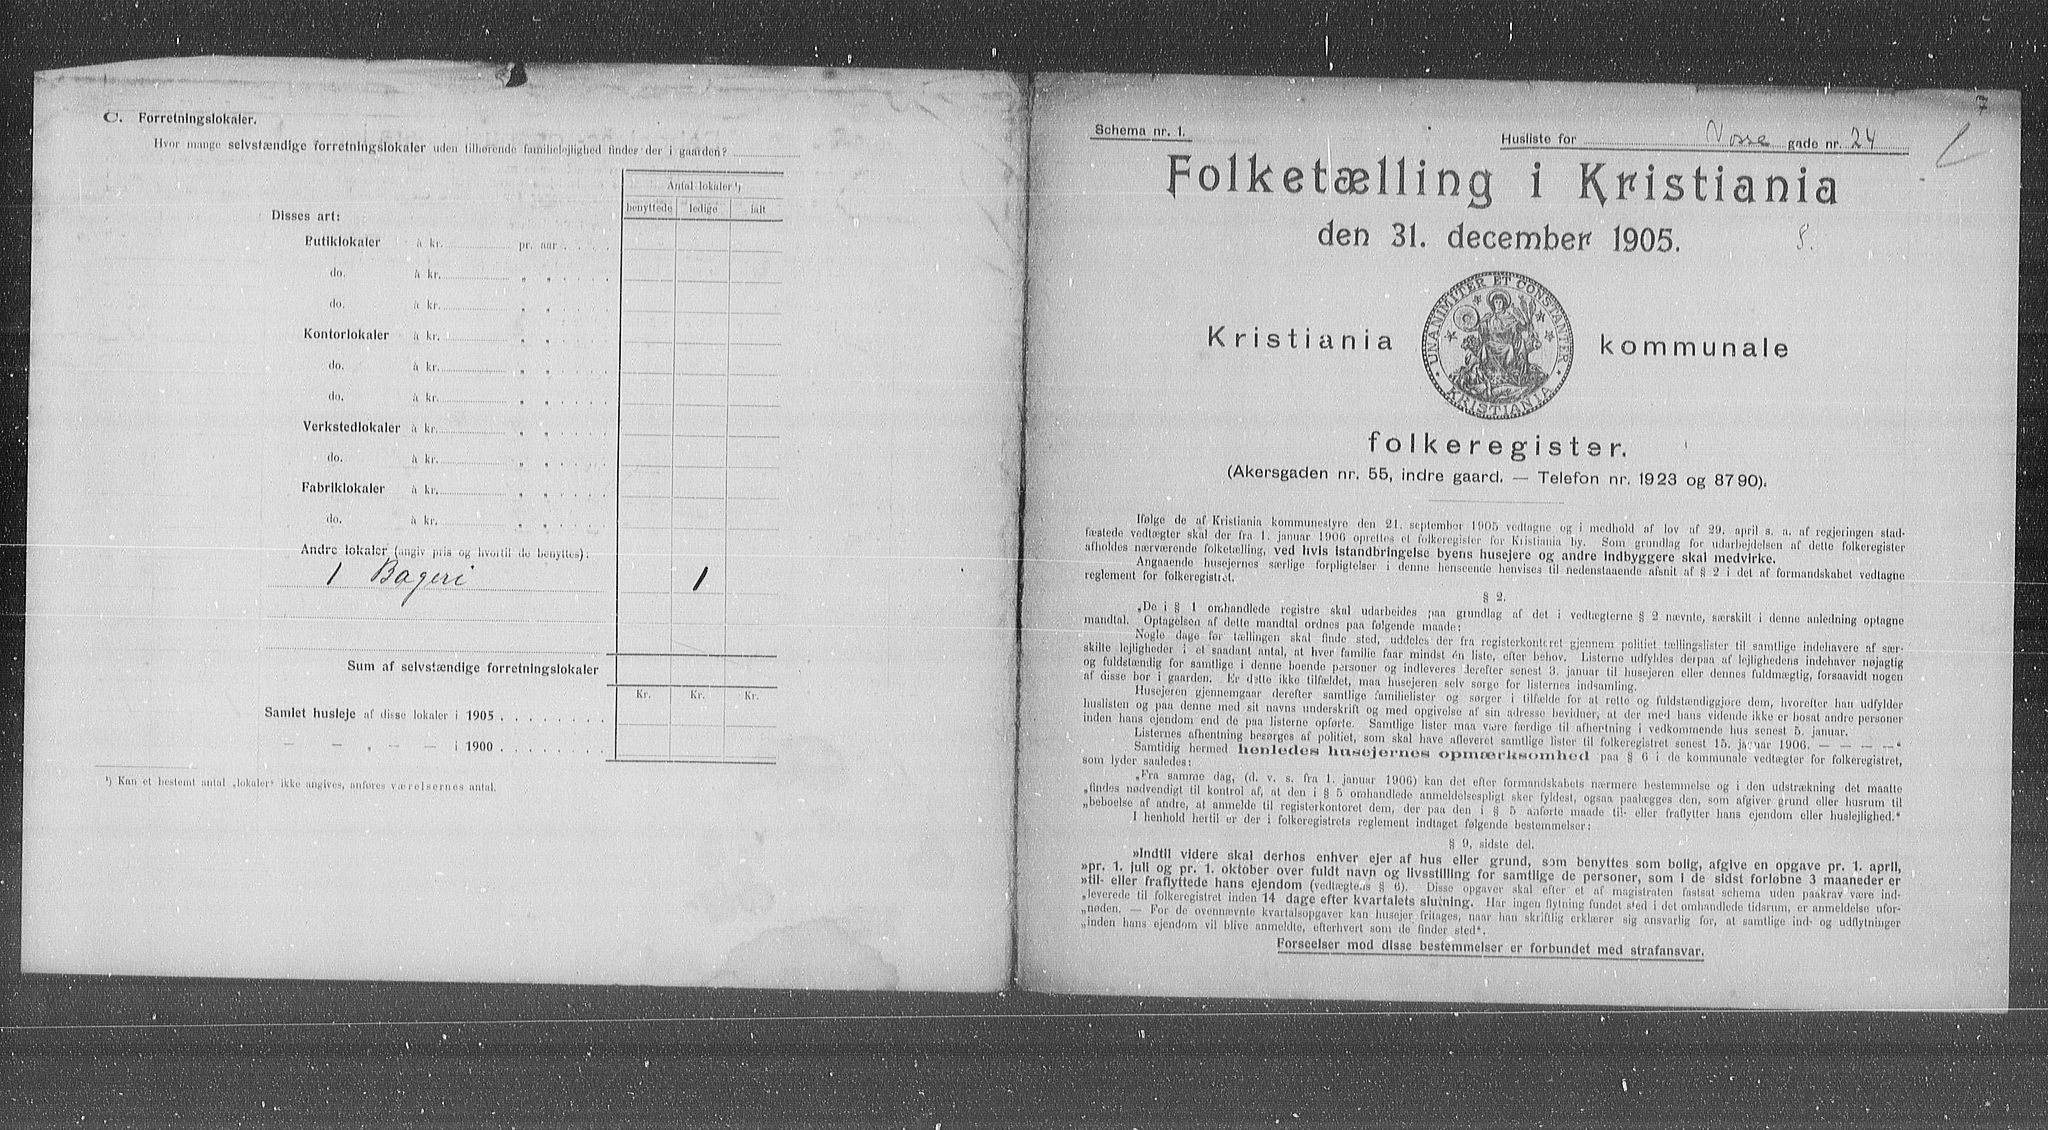 C. Forretningslokaler.
Hvor mange selvstændige forretningslokaler uden tilhørende familielejlighed findes der i gaarden?
Antal lokaler ¹)
benyttede ledige ialt
Disses art:
Butiklokaler à kr. pr. aar
do. à kr. „ „
do. à kr. „ „
Kontorlokaler à kr. „ „
do. à kr. „ „
do. à kr. „ „
Verkstedlokaler à kr. „ „
do. à kr. „ „
Fabriklokaler à kr. „ „
do. à kr. „ „
Andre lokaler (angiv pris og hvortil de benyttes):
1 Bageri 1
Sum af selvstændige forretningslokaler
Kr. Kr. Kr.
Samlet husleje af disse lokaler i 1905
— — „ — — i 1900
¹) Kan et bestemt antal „lokaler“ ikke angives, anføres værelsernes antal.
7
Schema nr. 1.
Husliste for Vosse gade nr. 24
Folketælling i Kristiania
den 31. december 1905.
8.
UNANIMITER ET CONSTANTER
KRISTIANIA
Kristiania kommunale
folkeregister.
(Akersgaden nr. 55, indre gaard. — Telefon nr. 1923 og 8790).
Ifølge de af Kristiania kommunestyre den 21. september 1905 vedtagne og i medhold af lov af 29. april s. a. af regjeringen stad-
fæstede vedtægter skal der fra 1. januar 1906 oprettes et folkeregister for Kristiania by. Som grundlag for udarbejdelsen af dette folkeregister
afholdes nærværende folketælling, ved hvis istandbringelse byens husejere og andre indbyggere skal medvirke.
Angaaende husejernes særlige forpligtelser i denne henseende henvises til nedenstaaende afsnit af § 2 i det af formandskabet vedtagne
reglement for folkeregistret.
§ 2.
„De i § 1 omhandlede registre skal udarbeides paa grundlag af det i vedtægterne § 2 nævnte, særskilt i denne anledning optagne
mandtal. Optagelsen af dette mandtal ordnes paa følgende maade:
Nogle dage før tællingen skal finde sted, uddeles der fra registerkontoret gjennem politiet tællingslister til samtlige indehavere af sær-
skilte lejligheder i et saadant antal, at hver familie faar mindst én liste, efter behov. Listerne udfyldes derpaa af lejlighedens indehaver nøjagtig
og fuldstændig for samtlige i denne boende personer og indleveres derefter senest 3. januar til husejeren eller dennes fuldmægtig, forsaavidt nogen
af disse bor i gaarden. Er dette ikke tilfældet, maa husejeren selv sørge for listernes indsamling.
Husejeren gjennemgaar derefter samtlige familielister og sørger i tilfælde for at rette og fuldstændiggjøre dem, hvorefter han udfylder
huslisten og paa denne med sit navns underskrift og med opgivelse af sin adresse bevidner, at der med hans vidende ikke er bosat andre personer
inden hans ejendom end de paa listerne opførte. Samtlige lister maa være færdige til afhentning i vedkommende hus senest 5. januar.
Listernes afhentning besørges af politiet, som skal have afleveret samtlige lister til folkeregistret senest 15. januar 1906. — — — —“
Samtidig hermed henledes husejernes opmærksomhed paa § 6 i de kommunale vedtægter for folkeregistret,
som lyder saaledes:
„Fra samme dag, (d. v. s. fra 1. januar 1906) kan det efter formandskabets nærmere bestemmelse og i den udstrækning det maatte
„findes nødvendigt til kontrol af, at den i § 5 omhandlede anmeldelsespligt sker fyldest, ogsaa paalægges den, som afgiver grund eller husrum til
„beboelse af andre, at anmelde til registerkontoret dem, der paa den i § 5 anførte maade til- eller fraflytter hans ejendom eller huslejlighed.“
I henhold hertil er der i folkeregistrets reglement indtaget følgende bestemmelser:
§ 9, sidste del.
»Indtil videre skal derhos enhver ejer af hus eller grund, som benyttes som bolig, afgive en opgave pr. 1. april,
»pr. 1. juli og pr. 1. oktober over fuldt navn og livsstilling for samtlige de personer, som i de sidst forløbne 3 maaneder er
»til- eller fraflyttede hans ejendom (vedtægtens § 6). Disse opgaver skal efter et af magistraten fastsat schema uden paakrav være ind-
„leverede til folkeregistret inden 14 dage efter kvartalets slutning. Har ingen flytning fundet sted i det omhandlede tidsrum, er anmeldelse ufor-
„nøden. — For de ovennævnte kvartalsopgaver kan husejer fritages, naar han skriftlig erklærer sig ansvarlig for, at samtlige ind- og udflytninger
„inden hans ejendom vil blive anmeldte, efterhvert som de finder sted“.
Forseelser mod disse bestemmelser er forbundet med strafansvar.